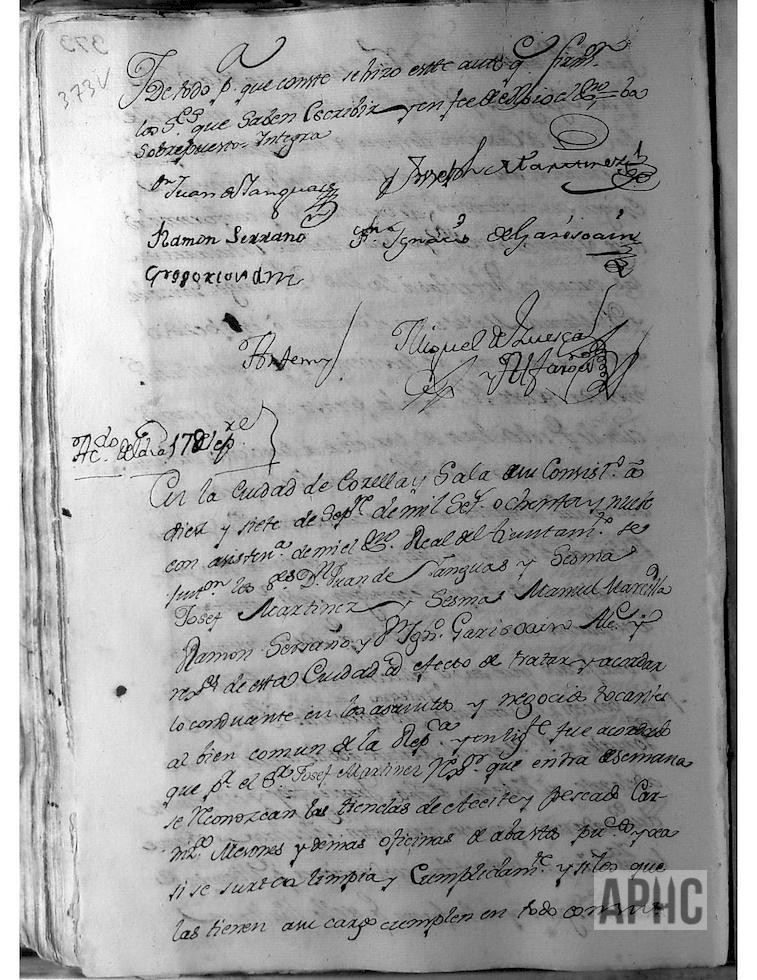 373V
De todo p.r que conste se hizo este auto q.e firm.n
los S.res que saben Escribir y en fee de ello io el Ess.no = ba
Sobrepuesto = Integra
Dn Juan de Sanguas
Joseph Martinez
Ramon Serrano Ignacio de Garisoain
Gregorio
Ante my
Miguel de Luesça
y Alfaro
Ac.do del dia 17 de Sep.re
En la Ciudad de Corella y Sala de su Consist.o a
diez y siete de Sep.re de mil Set.s ochenta y nueve
con asisten.a de mi el Ess.no Real del Aiuntam.to se
juntaron los S.res D.n Juan de Sanguas y Sesma
Josef Martinez y Sesma Manuel Marcilla
Ramon Serrano y D.n Ign.o Garisoain Alc.e y
reg.res de esta Ciudad a efecto de tratar y acordar
lo conduzente en los asuntos y negocios tocantes
al bien comun de la Rep.ca y en su fuee fue acordado
que p.r el S.r Josef Martinez Reg.or que entra de semana
se Reconozcan las tiendas de Aceite y pescado Car-
niz.s Mesones y demas oficinas de abastos pu.cos y vea
si se surten limpia y Cumplidam.te y si los que
las tienen a su cargo cumplen en todo con
APHC